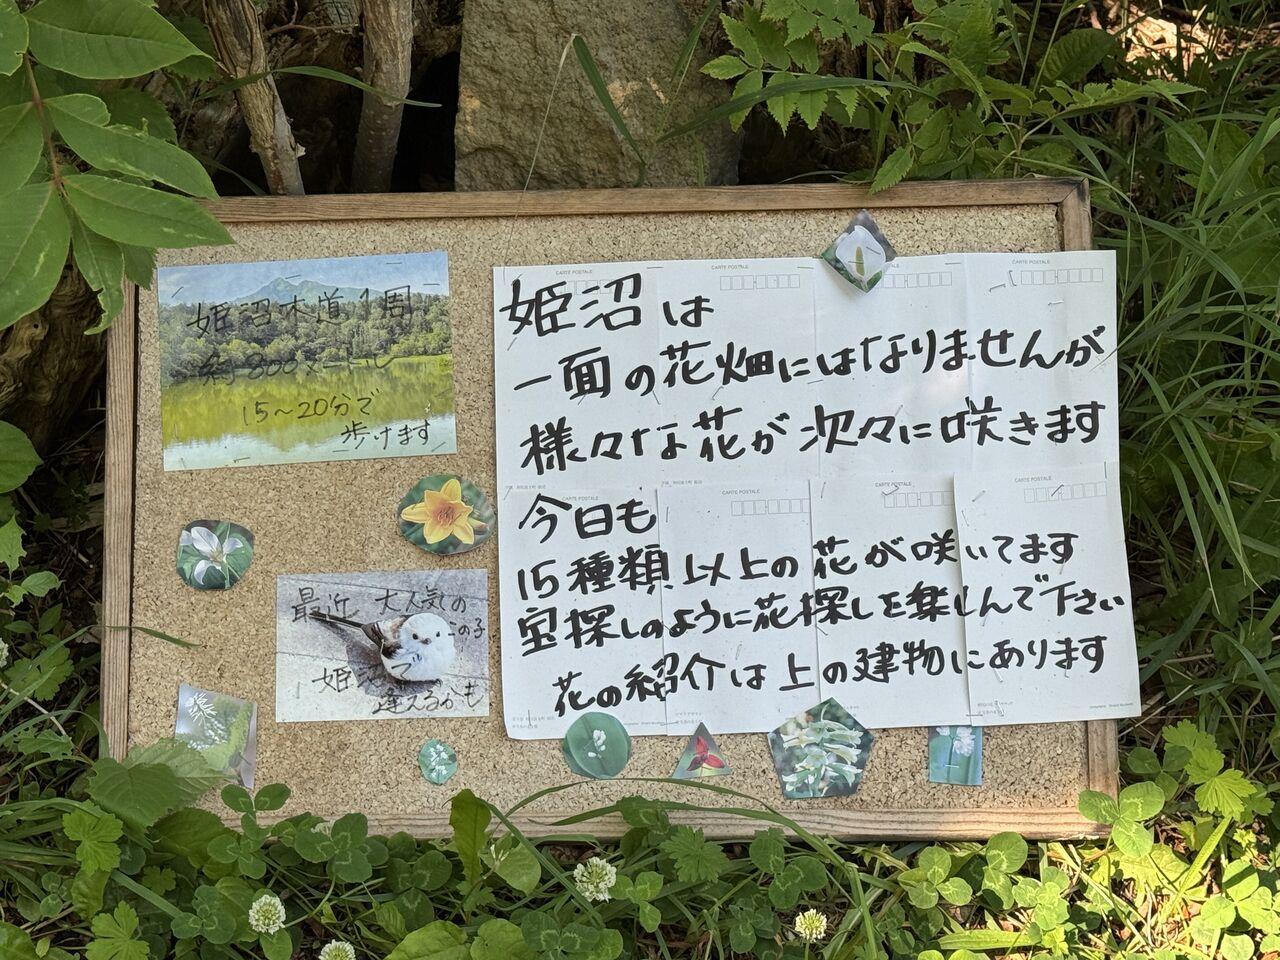 姫沼歩道1周
約800メートル
15~20分で
歩けます
最近 大人気の
この子
姫沼で
逢えるかも
CARTE POSTALE
CARTE POSTALE
CARTE POSTALE
CARTE POSTALE
姫沼は
一面の花畑にはなりませんが
様々な花が次々に咲きます
CARTE POSTALE
CARTE POSTALE
CARTE POSTALE
CARTE POSTALE
今日も
15種類以上の花が咲いてます
宝探しのように花探しを楽しんで下さい
花の紹介は上の建物にあります